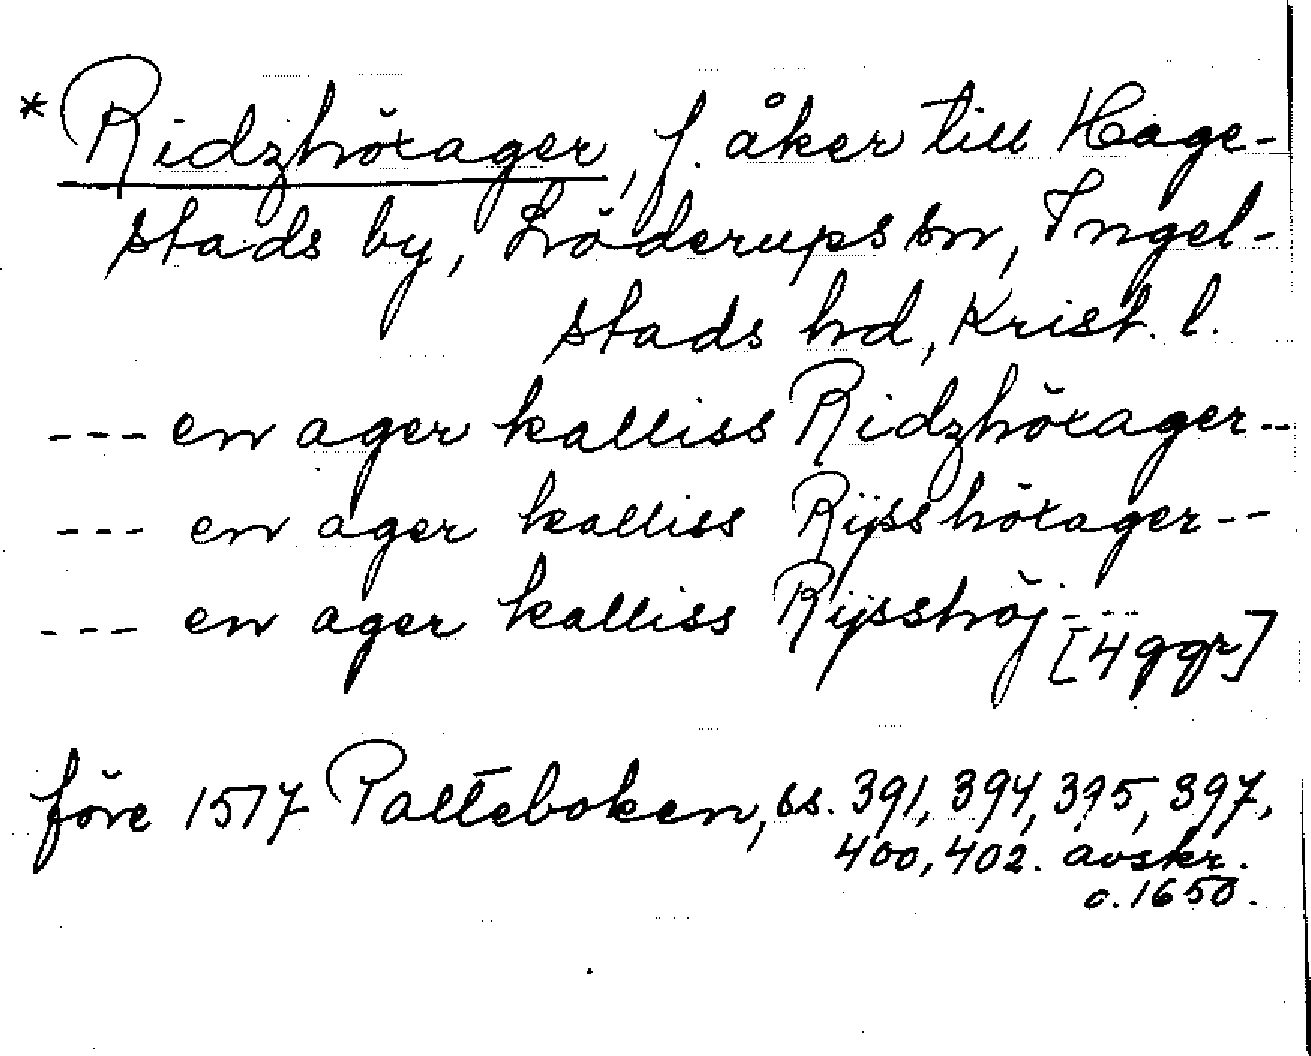 *Ridzhöxager, f. åker till Hage-
stads by, Löderups sn, Ingel-
stads hd, Krist. l.
--- en ager kalliss Ridzhöxager--
--- en ager kalliss Rijsshöxager--
--- en ager kalliss Rijsshöj---
[4 ggr]
före 1517 Palteboken, ss. 391, 394, 395, 397,
400, 402. avskr.
c. 1650.